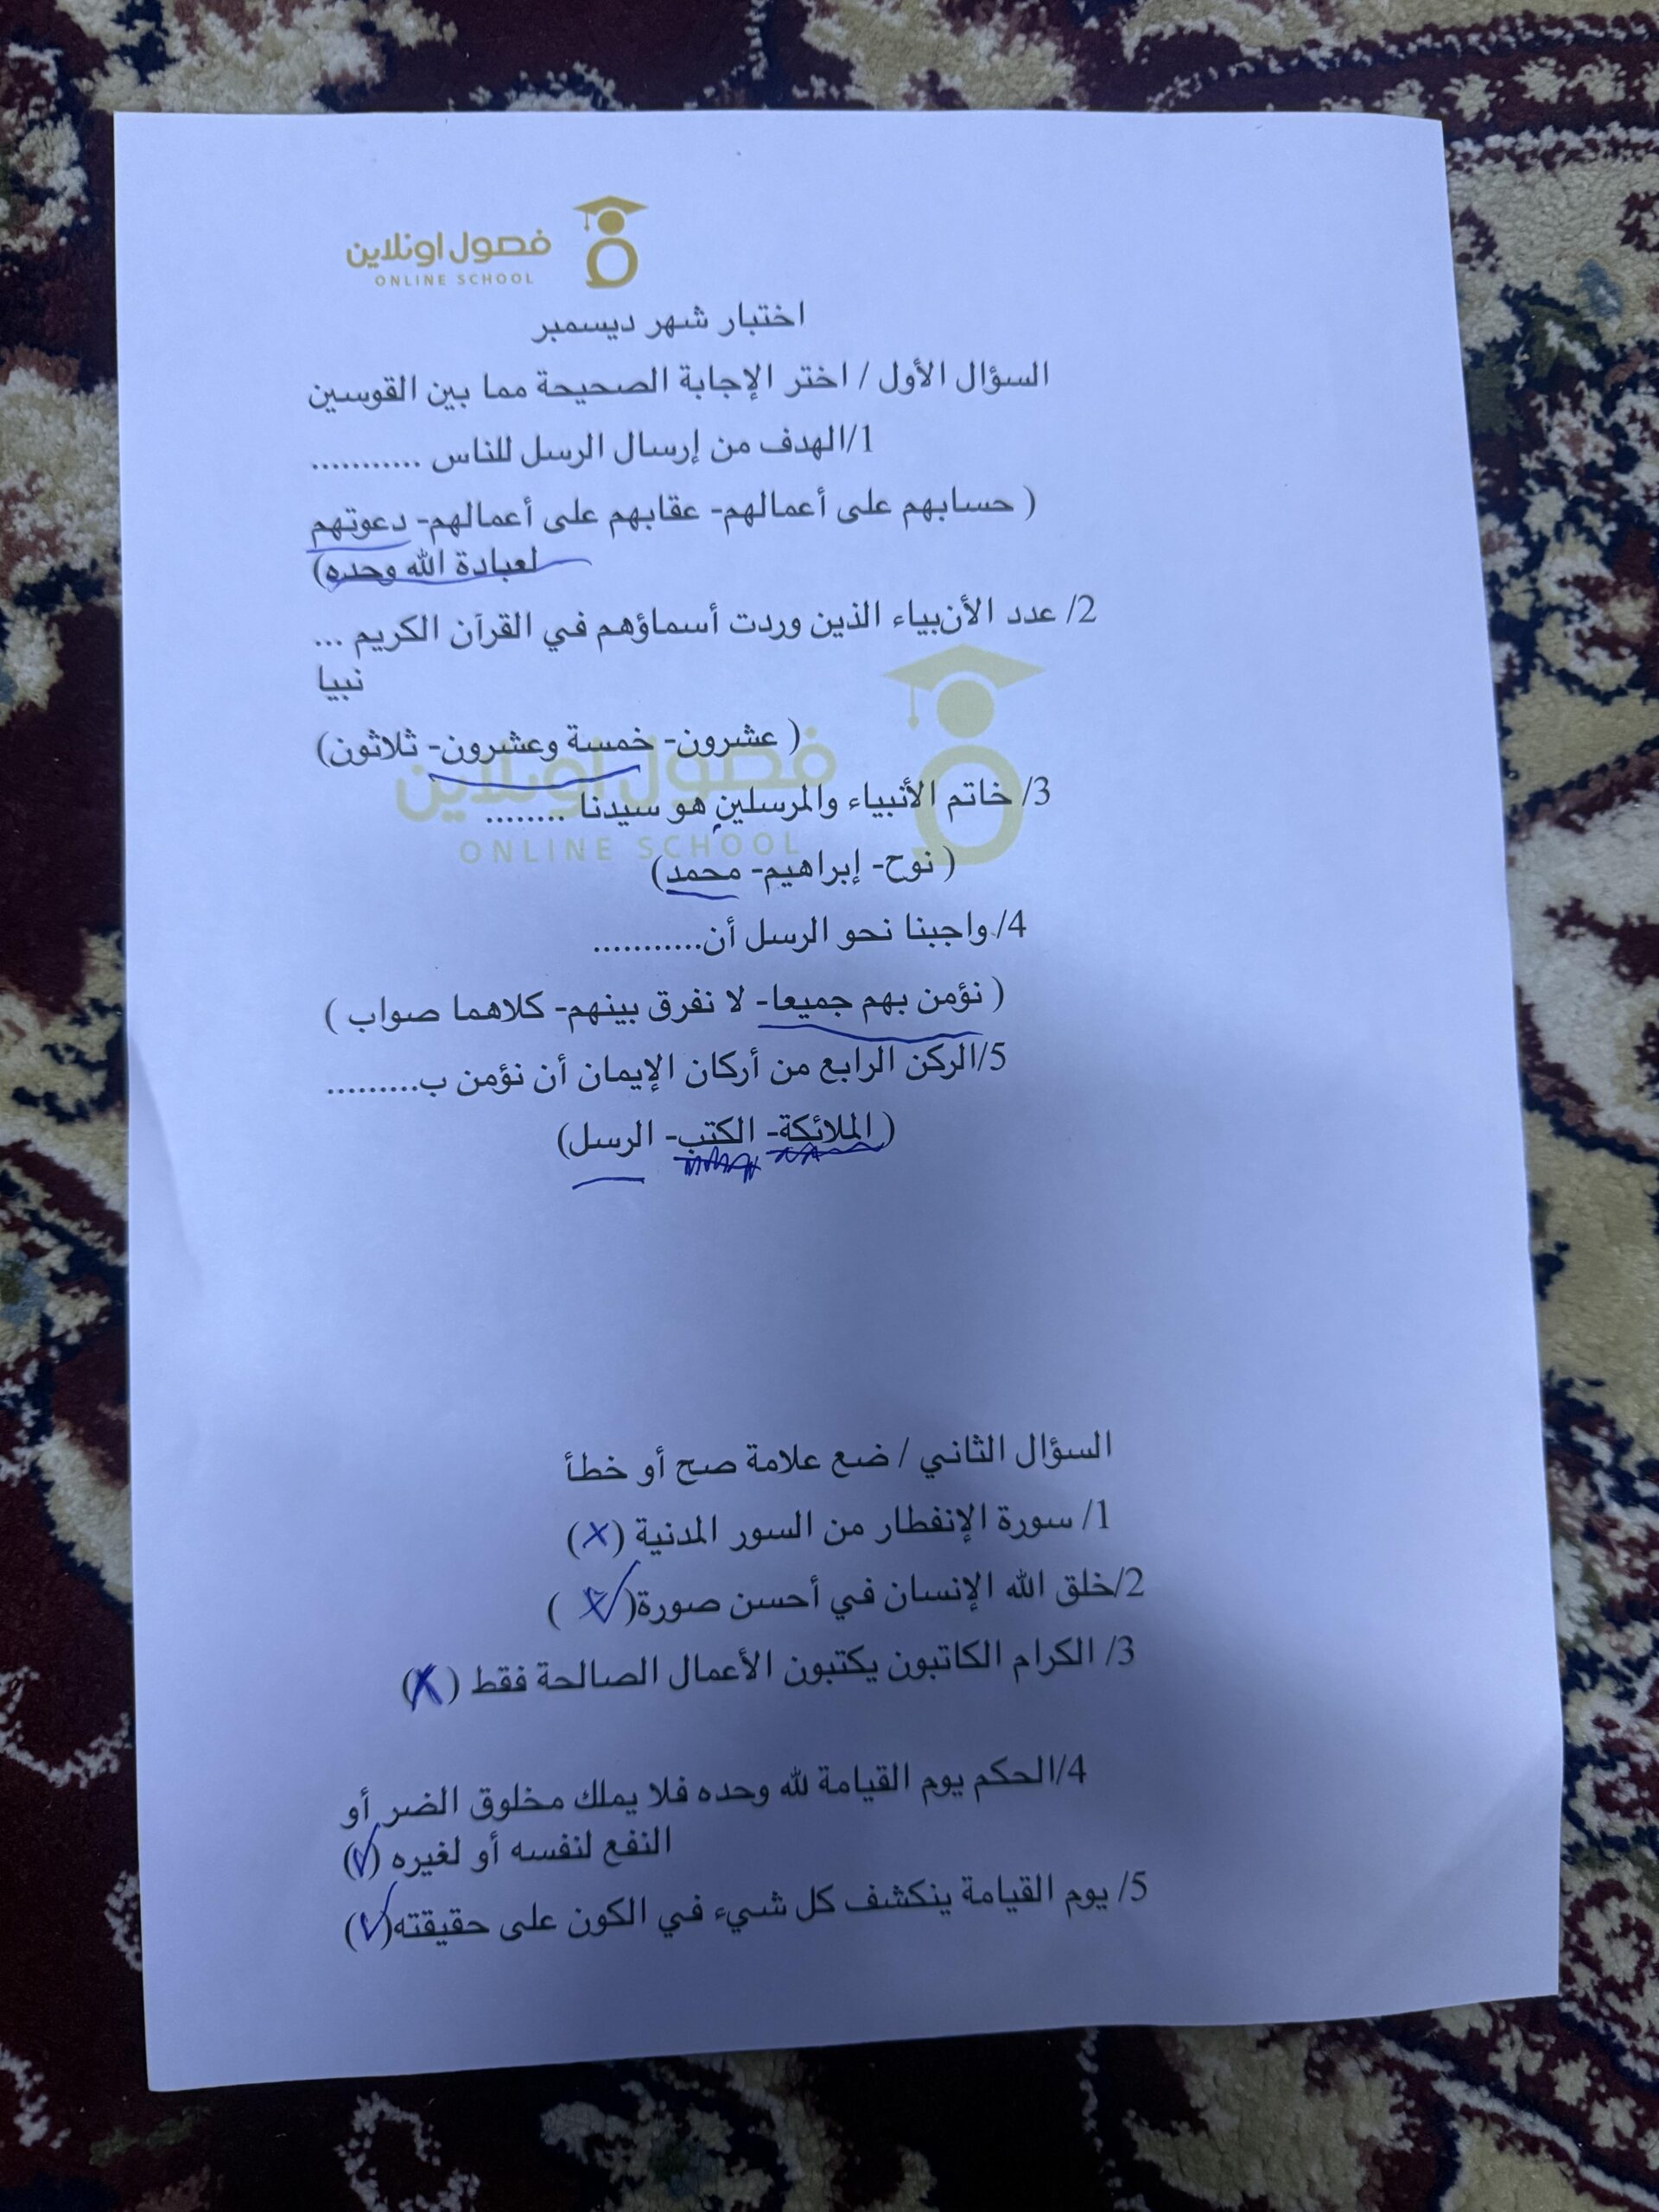 فصول اونلاين
ONLINE SCHOOL
اختبار شهر ديسمبر
السؤال الأول / اختر الإجابة الصحيحة مما بين القوسين
1/الهدف من إرسال الرسل للناس ...........
( حسابهم على أعمالهم- عقابهم على أعمالهم- دعوتهم
لعبادة الله وحده)
2/ عدد الأنبياء الذين وردت أسماؤهم في القرآن الكريم ...
نبيا
( عشرون- خمسة وعشرون- ثلاثون)
فصول اونلاين
3/ خاتم الأنبياء والمرسلين هو سيدنا ........
ONLINE SCHOOL
( نوح- إبراهيم- محمد)
4/ واجبنا نحو الرسل أن...........
( نؤمن بهم جميعا- لا نفرق بينهم- كلاهما صواب )
5/الركن الرابع من أركان الإيمان أن نؤمن ب.........
( الملائكة- الكتب- الرسل)
السؤال الثاني / ضع علامة صح أو خطأ
1/ سورة الإنفطار من السور المدنية (×)
2/خلق الله الإنسان في أحسن صورة(✓ )
3/ الكرام الكاتبون يكتبون الأعمال الصالحة فقط (×)
4/الحكم يوم القيامة لله وحده فلا يملك مخلوق الضر أو
النفع لنفسه أو لغيره (✓)
5/ يوم القيامة ينكشف كل شيء في الكون على حقيقته(✓)